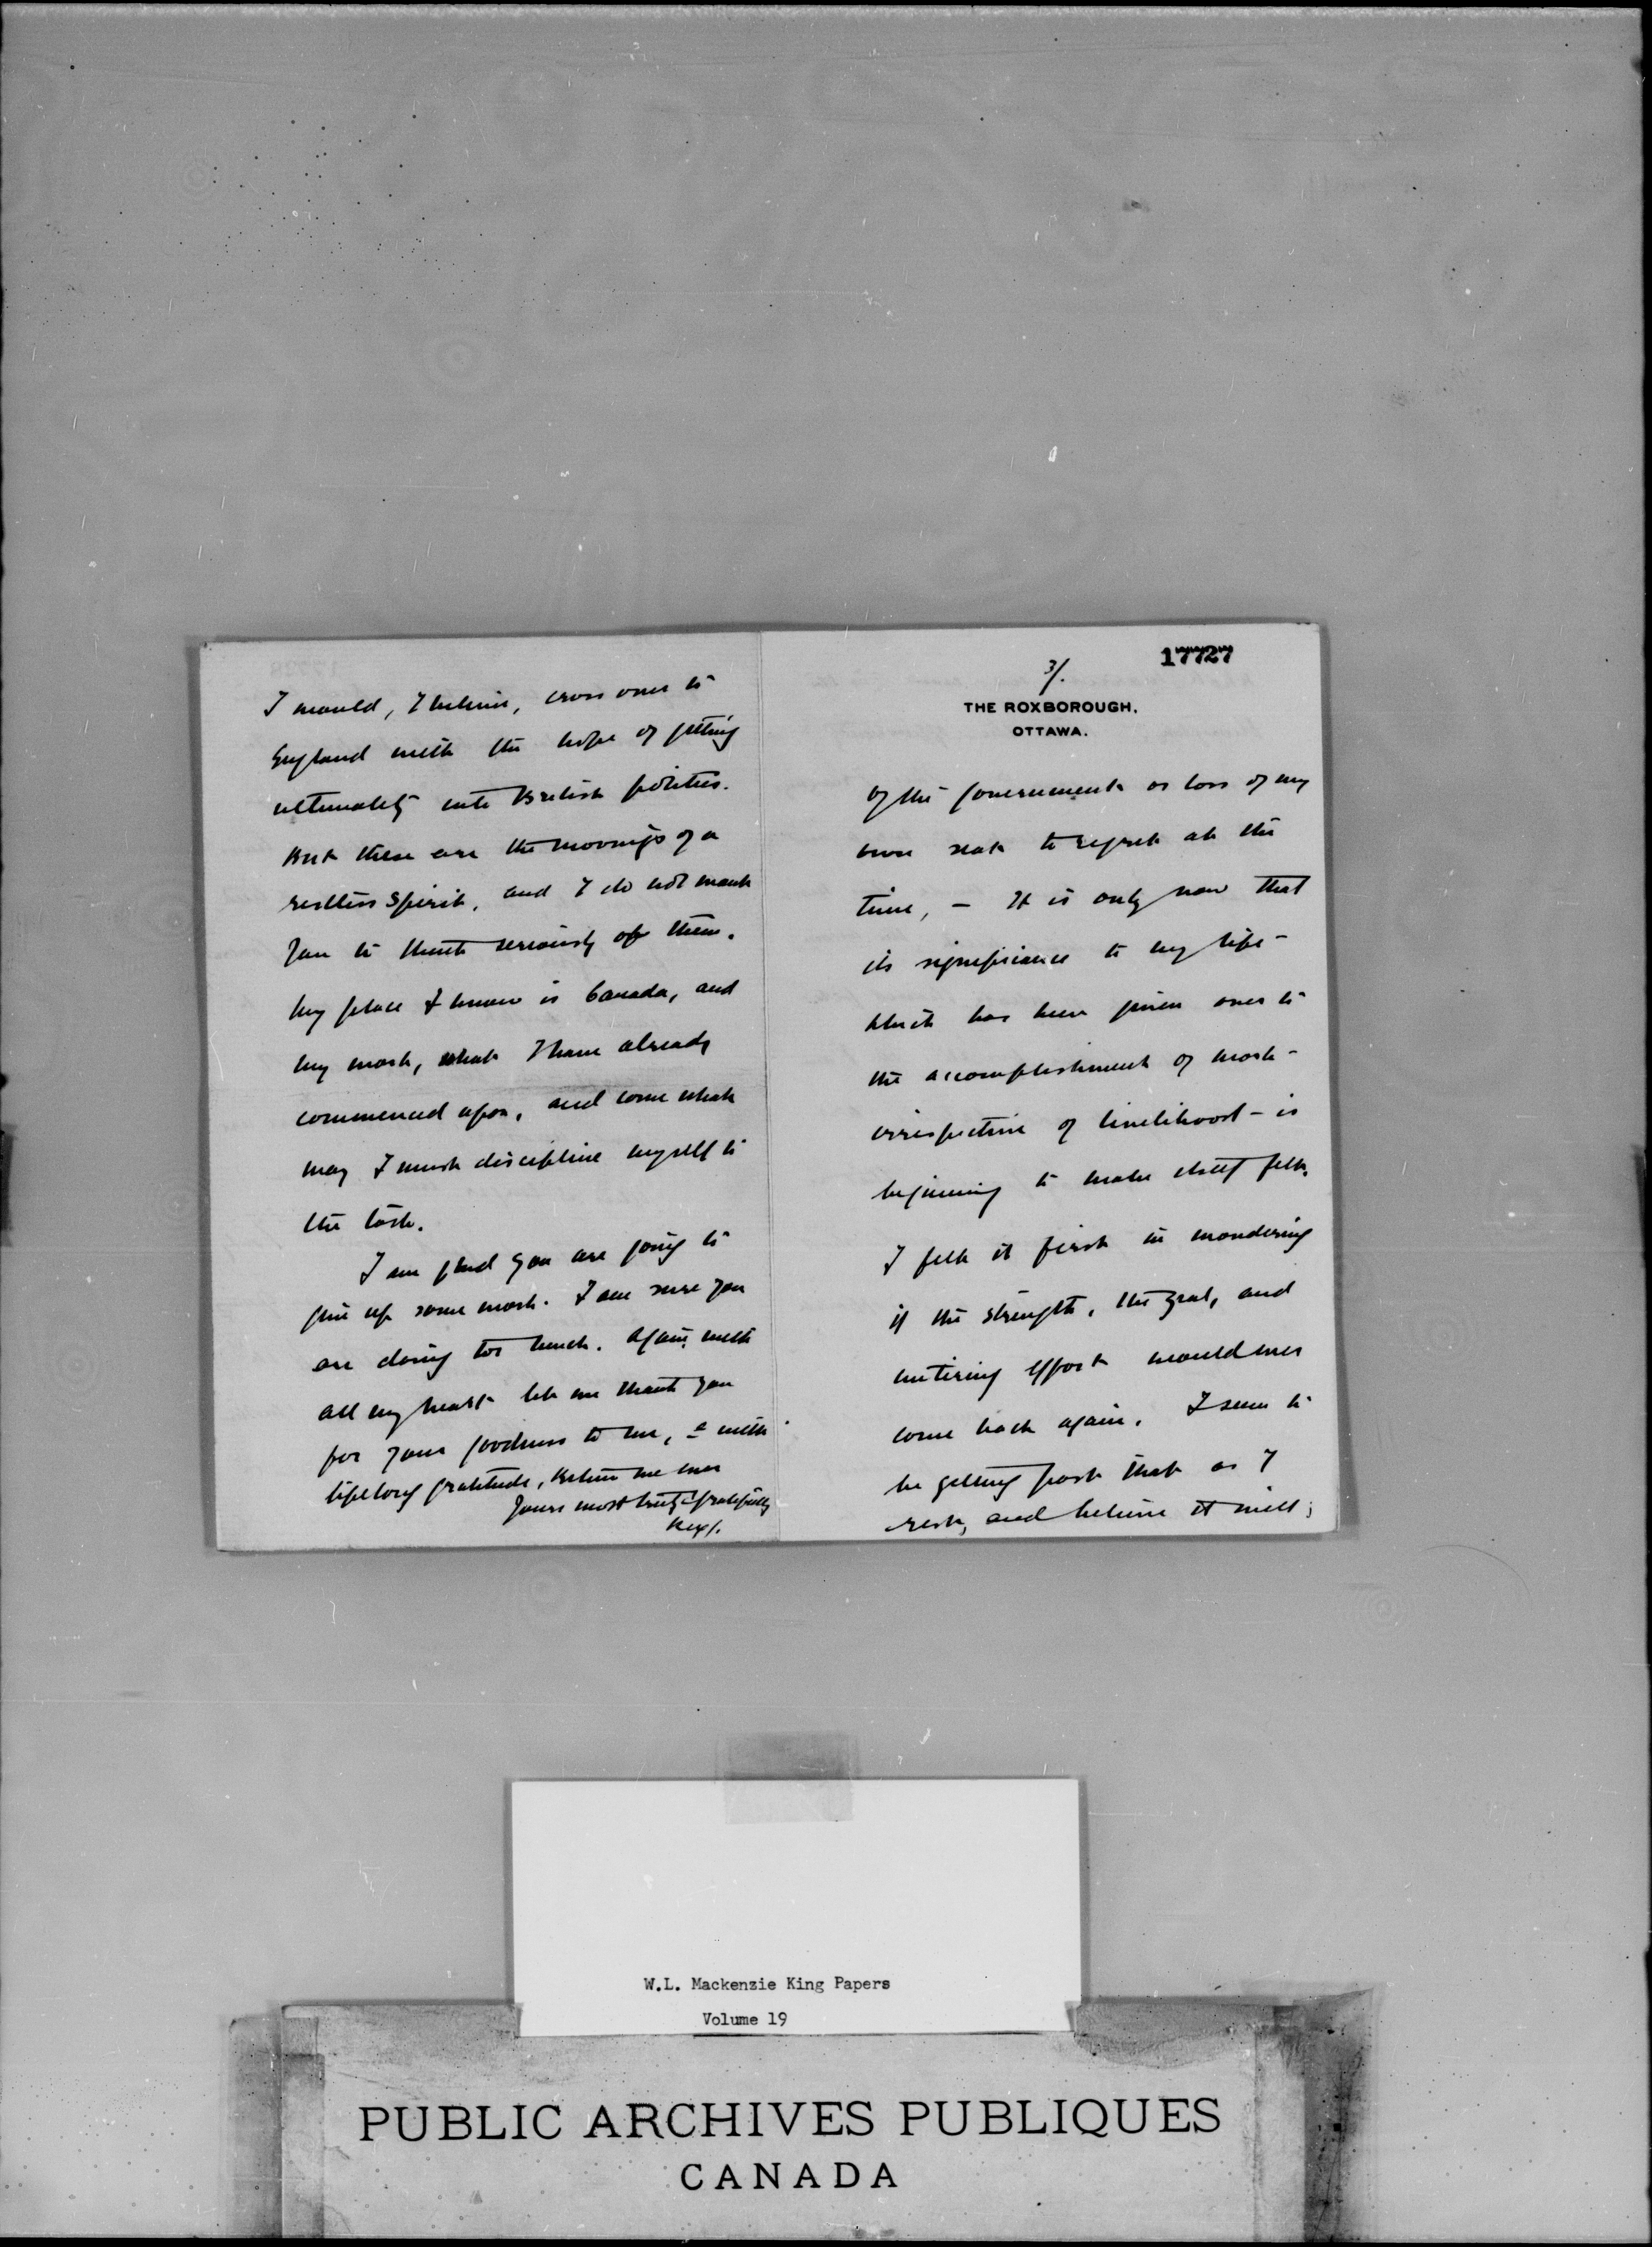 I would, I believe, cross over to
England with the hope of getting
ultimately into British politics.
But these are the movings of a
restless spirit, and I do not want
you to think seriously of them.
My place I know is Canada, and
my work, what I have already
commenced upon, and come what
may I must discipline myself to
the task.
I am glad you are going to
give up some work. I am sure you
are doing too much. Again, with
all my heart let me thank you
for your goodness to me, & with
lifelong gratitude, Believe me ever
Yours most truly & gratefully
Rex.
17727
3/.
THE ROXBOROUGH.
OTTAWA.
of the government or loss of my
own seat to regret at the
time, - It is only now that
its significance to my life -
which has been given over to
the accomplishment of work -
irrespective of livelihood - is
beginning to make itself felt.
I felt it first in wondering
if the strength, the zeal, and
untiring effort would ever
come back again. I seem to
be getting past that as I
rest, and believe it will;
W.L. Mackenzie King Papers
Volume 19
PUBLIC ARCHIVES PUBLIQUES
CANADA